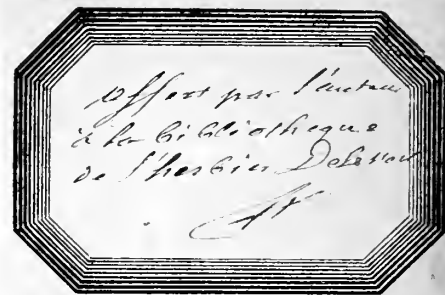 Offert par l'auteur
à la bibliothèque
de l'herbier Delessert